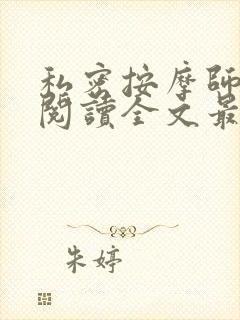 私密按摩師
閱讀全文最
朱婷